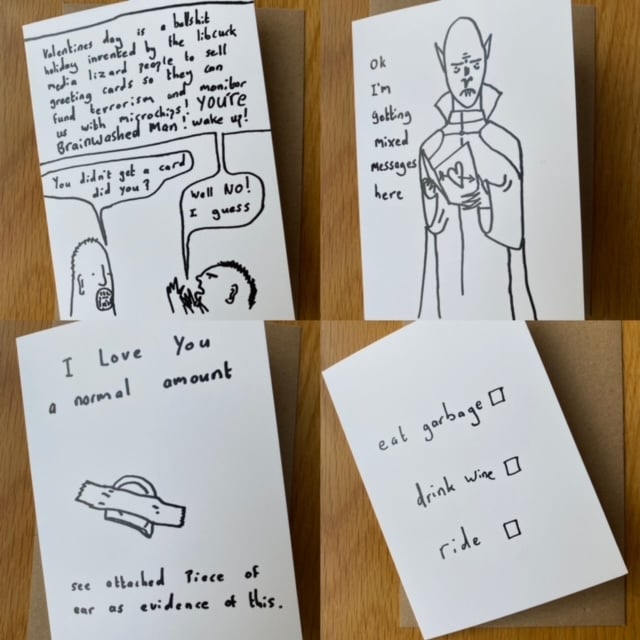 Valentines day is a bullshit
holiday invented by the libcuck
media lizard people to sell
greeting cards so they can
fund terrorism and monitor
us with microchips! YOU'RE
Brainwashed Man! wake up!
You didn't get a card
did you?
Well NO!
I guess
Ok
I'm
getting
mixed
messages
here
I Love You
a normal amount
see attached Piece of
ear as evidence of this.
eat garbage
drink wine
ride